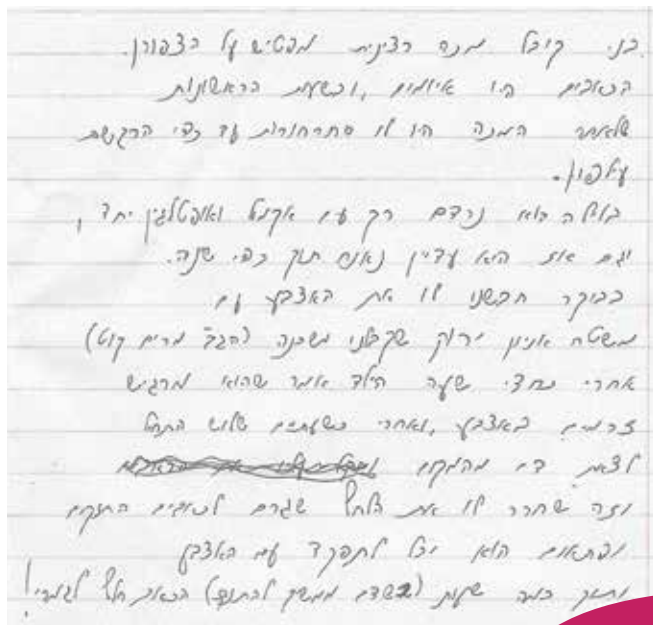 בני קיבל מנה רצינית מפטיש על הציפורן.
הכאבים היו איומים, ובשעות הראשונות
שלאחר המכה היו לו סחרחורות עד כדי הרגשת
עילפון.
בלילה הוא נרדם רק עם אקמול ואופטלגין יחד,
וגם אז הוא עדיין נאנח תוך כדי שנה.
בבוקר חבשנו לו את האצבע עם
משטח אניון ירוק שקבלנו משכנה (הגב' מרים קוט)
אחרי כחצי שעה הילד אמר שהוא מרגיש
זרמים באצבע, ואחרי כשעתיים שלוש התחיל
לצאת דם מהמקום
וזה שחרר לו את הלחץ שגרם לכאבים החזקים
ופתאום הוא יכל לתפקד עם האצבע
ותוך כמה שעות (כשדם ממשיך להתנקז) הכאב חלף לגמרי!